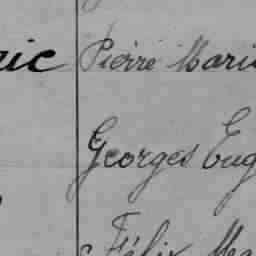 ric Pierre Mari
Georges Eug
Félix Ma